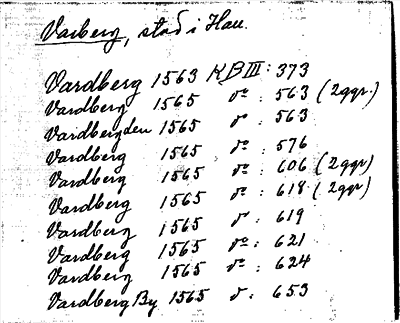 Varberg, stad i Hall.
Vardberg 1563 KB III: 373
Vardberg 1565 do: 563 (2ggr.)
Vardberg, den 1565 do: 563
Vardberg 1565 do: 576
Vardberg 1565 do: 606 (2ggr)
Vardberg 1565 do: 618 (2ggr)
Vardberg 1565 do: 619
Vardberg 1565 do: 621
Vardberg 1565 do: 624
Vardberg By 1565 do: 653